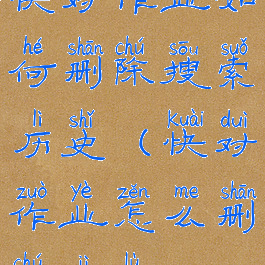 快对作业如
hé shān chú sōu suǒ
何删除搜索
lì shǐ kuài duì
历史（快对
zuò yè zěn me shān
作业怎么删
chú jì lù